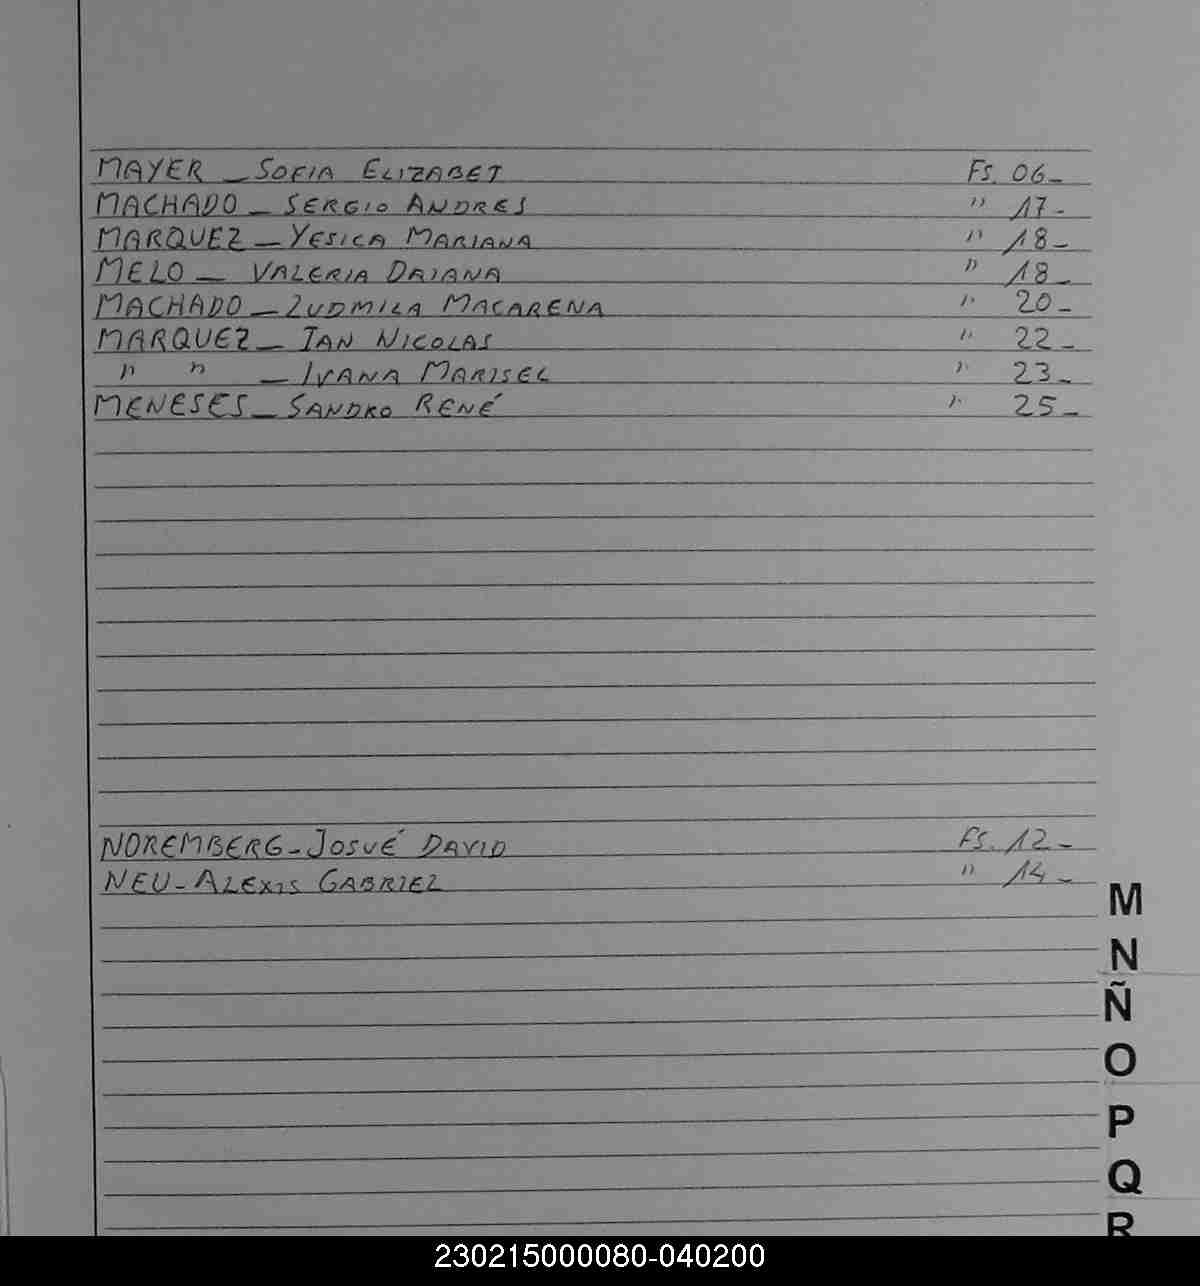 MAYER _ SOFIA ELIZABET Fs. 06_
MACHADO _ SERGIO ANDRES " 17_
MARQUEZ _ YESICA MARIANA " 18_
MELO _ VALERIA DAIANA " 18_
MACHADO _ LUDMILA MACARENA " 20_
MARQUEZ _ IAN NICOLAS " 22_
" " _ IVANA MARISEL " 23_
MENESES _ SANDRO RENÉ " 25_
NOREMBERG - JOSUÉ DAVID Fs. 12_
NEU - ALEXIS GABRIEL " 14_
M
N
Ñ
O
P
Q
R
230215000080-040200